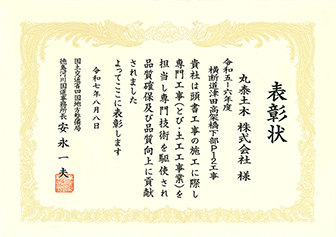 表彰状
丸泰土木 株式会社 様
令和五-六年度
横断道津田高架橋下部P12工事
貴社は頭書工事の施工に際し
専門工事(とび・土工工事業)を
担当し専門技術を駆使され
品質確保及び品質向上に貢献
されました
よってここに表彰します
令和七年八月八日
国土交通省四国地方整備局
徳島河川国道事務所長 安永一夫